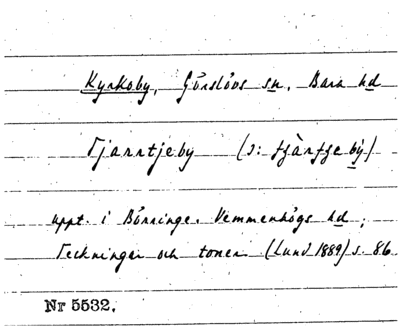 Kyrkoby, Görslövs sn, Bara hd
Tjanntjeby (ɔ: tjàntje bý)
uppt. i Börringe, Vemmenhögs hd;
Teckningar och toner (Lund 1889) s. 86
Nr 5532.